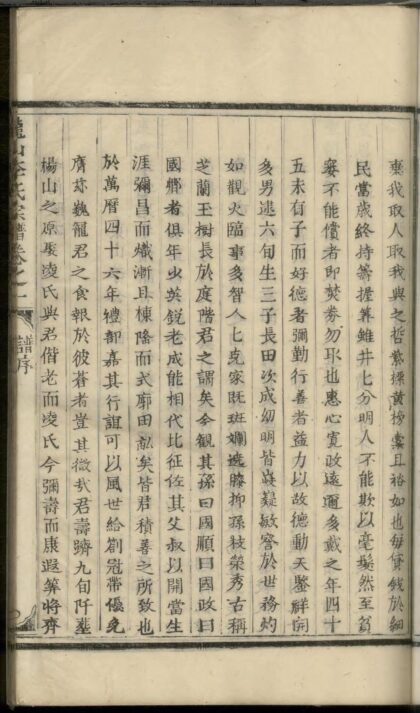 棄我取人取我與之哲縈標黃榜囊且裕如也每貸錢於細
民當歲終持籌握算雖井七分明人不能欺以毫髮然至窮
窶不能償者即焚券勿取也惠心寬政遠邇多戴之年四十
五未有子而好德者彌勤行善者益力以故德動天鑒祥開
多男逮六旬生三子長田次成幼明皆嶷嶷敏密於世務灼
如觀火臨事多智人七克家既班斕遶膝抑孫枝榮秀古稱
芝蘭玉樹長於庭階君之謂矣今觀其孫曰國順曰國政曰
國卿者俱年少英銳老成能相代比征佐其父叔以開當生
涯彌昌而熾漸且棟隆而式廓田畝矣皆君積善之所致也
於萬曆四十六年禮部嘉其行誼可以風世給劄冠帶優免
膺茲巍龍君之食報於彼蒼者豈其微哉君壽躋九旬阡塟
楊山之原娶凌氏與君偕老而凌氏今彌壽而康遐筭將齊
隴山李氏宗譜卷之一
譜序